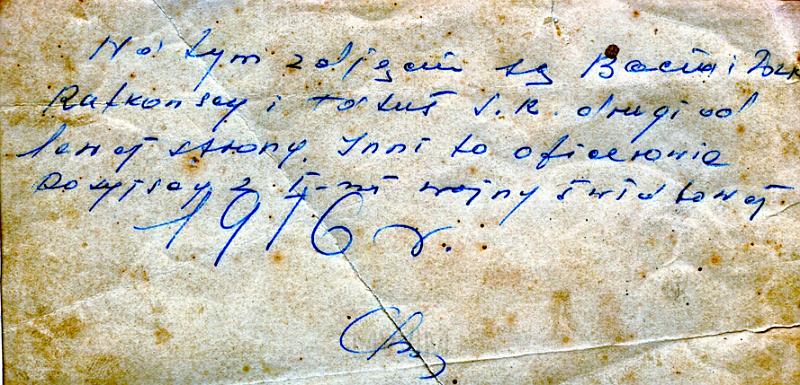 Na tym zdjęciu są Bacia i
Ratkowscy i tatuś S.R. drugi od
lewej strony. Inni to oficerowie
Rosyjscy z I-ej wojny światowej
1916 r.